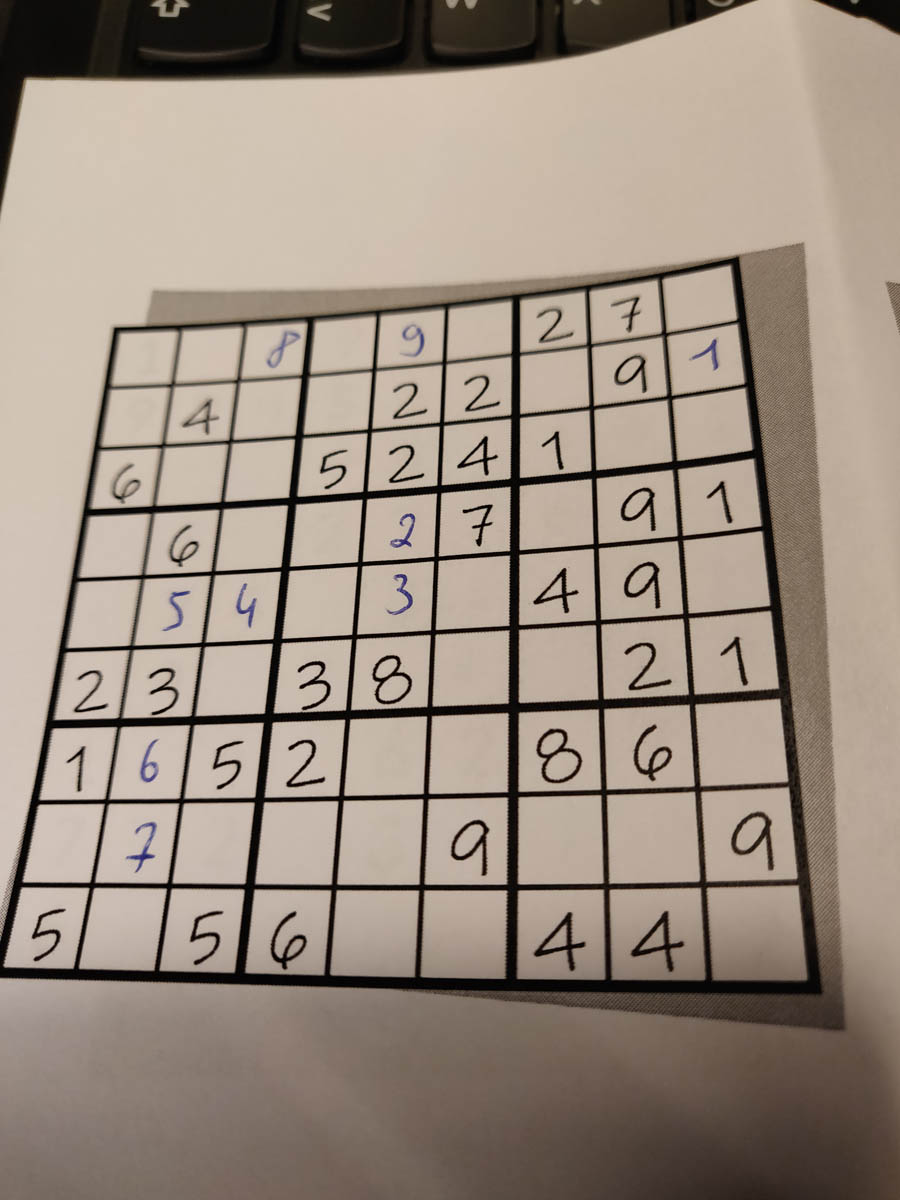 8 9 2 7
4 2 2 9 1
6 5 2 4 1
6 2 7 9 1
5 4 3 4 9
2 3 3 8 2 1
1 6 5 2 8 6
7 9 9
5 5 6 4 4